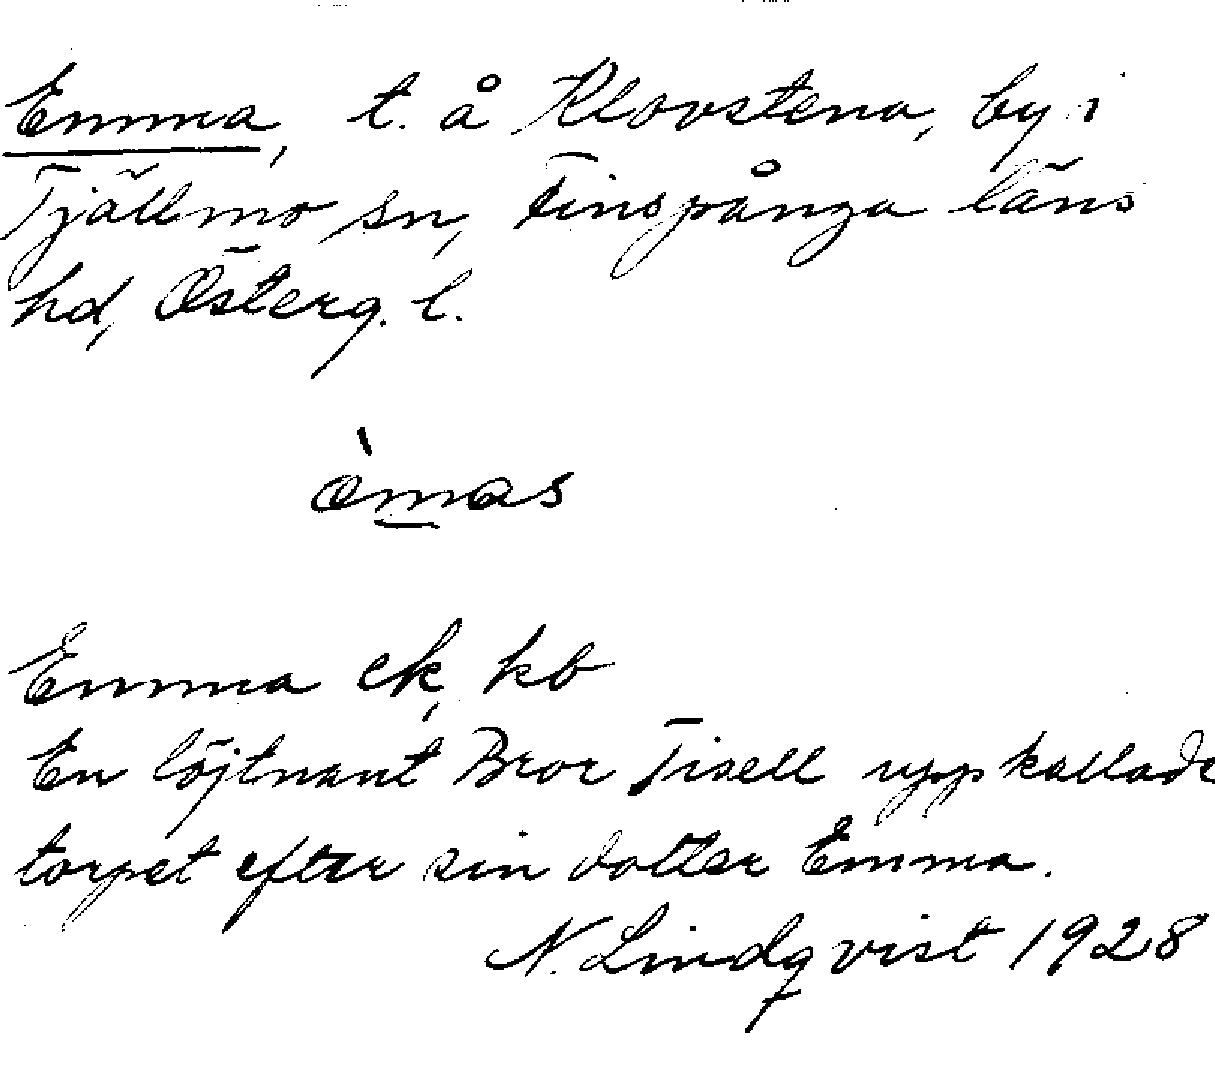 Emma, t. å Klovstena, by i
Tjällmo sn, Finspånga läns
hd, Österg. l.
òmas
Emma ek, kb
En löjtnant Bror Tisell uppkallade
torpet efter sin dotter Emma.
N. Lindqvist 1928